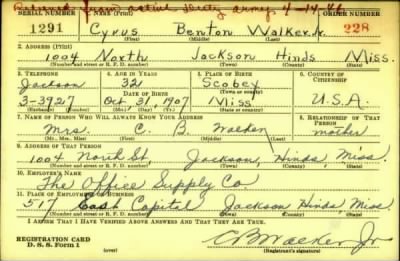 Released from active duty army 4-14-46
SERIAL NUMBER 1. NAME (Print) ORDER NUMBER
1291 Cyrus Benton Walker Jr. 228
(First) (Middle) (Last)
2. ADDRESS (Print)
1004 North Jackson Hinds Miss.
(Number and street or R. F. D. number) (Town) (County) (State)
3. TELEPHONE 4. AGE IN YEARS 5. PLACE OF BIRTH 6. COUNTRY OF CITIZENSHIP
Jackson 32 Scobey
DATE OF BIRTH (Town or county)
3-3927 Oct. 31, 1907 Miss. U.S.A.
(Exchange) (Number) (Mo.) (Day) (Yr.) (State or country)
7. NAME OF PERSON WHO WILL ALWAYS KNOW YOUR ADDRESS 8. RELATIONSHIP OF THAT PERSON
Mrs. C. B. Walker mother
(Mr., Mrs., Miss) (First) (Middle) (Last)
9. ADDRESS OF THAT PERSON
1004 North St. Jackson, Hinds Miss.
(Number and street or R. F. D. number) (Town) (County) (State)
10. EMPLOYER'S NAME
The Office Supply Co.
11. PLACE OF EMPLOYMENT OR BUSINESS
517 East Capital Jackson Hinds Miss
(Number and street or R. F. D. number) (Town) (County) (State)
I AFFIRM THAT I HAVE VERIFIED ABOVE ANSWERS AND THAT THEY ARE TRUE.
REGISTRATION CARD
D. S. S. Form 1 (over) CB Walker Jr
(Registrant's signature)